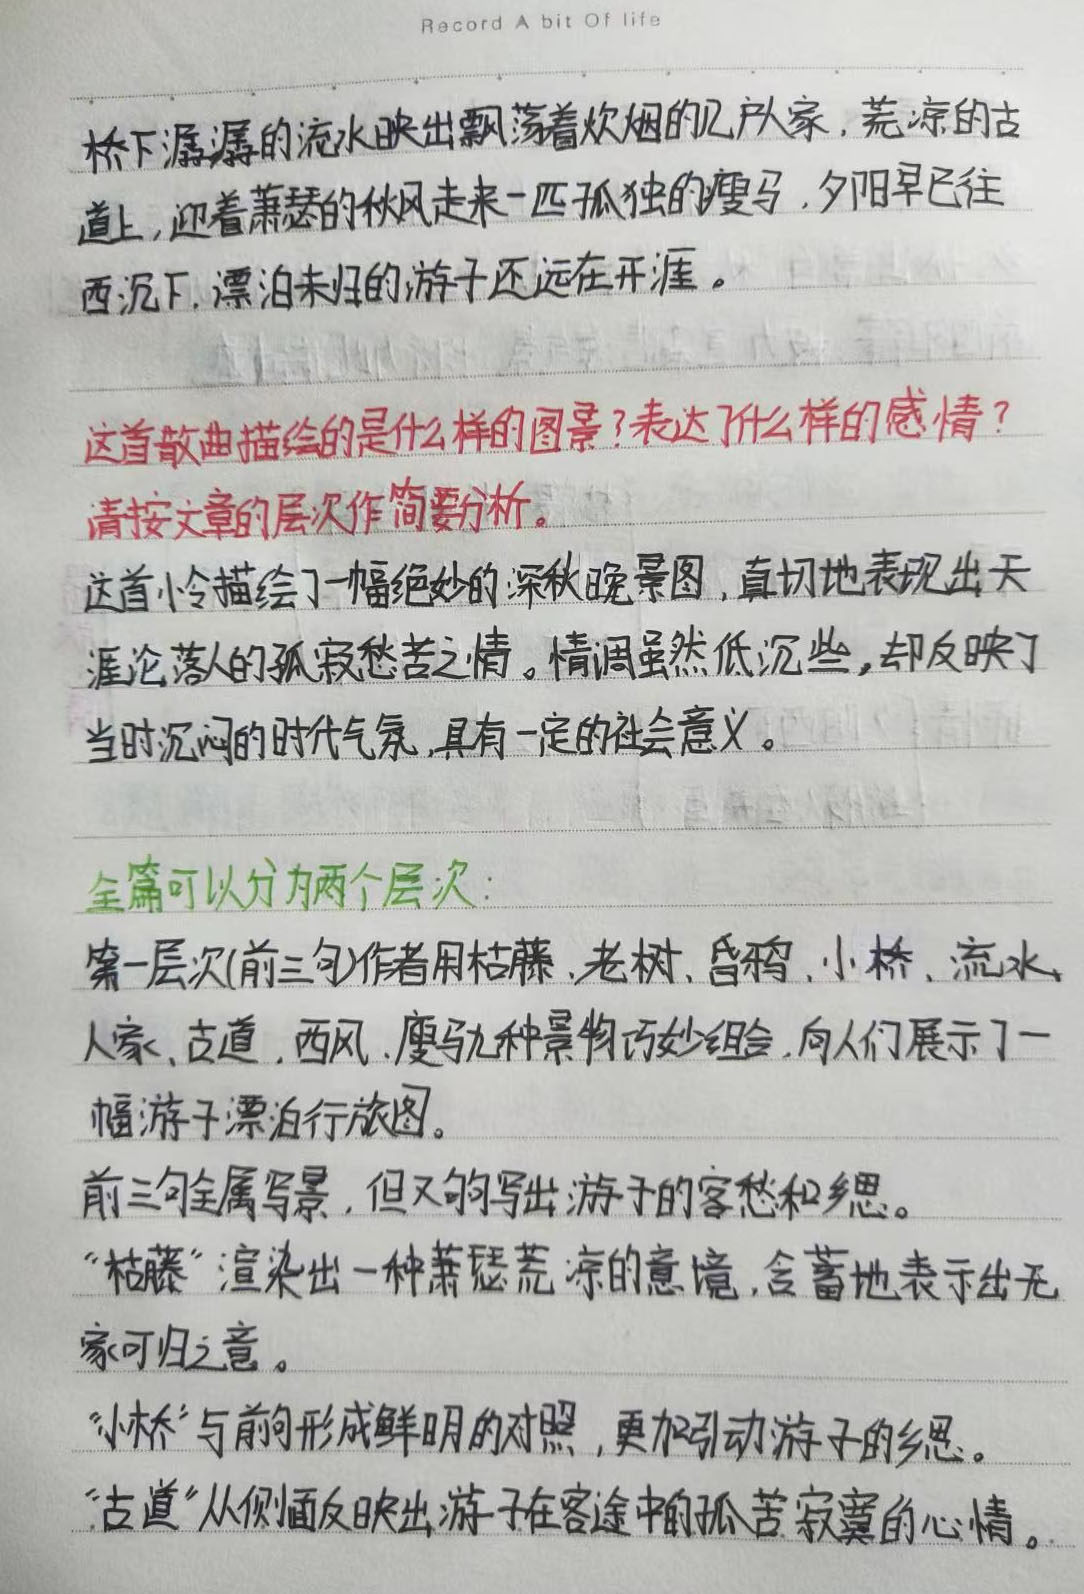 Record A bit Of life
桥下潺潺的流水映出飘荡着炊烟的几户人家，荒凉的古
道上，迎着萧瑟的秋风走来一匹孤独的瘦马，夕阳早已往
西沉下，漂泊未归的游子还远在开涯。
这首散曲描绘的是什么样的图景？表达了什么样的感情？
请按文章的层次作简要分析。
这首小令描绘了一幅绝妙的深秋晚景图，真切地表现出天
涯沦落人的孤寂愁苦之情。情调虽然低沉些，却反映了
当时沉闷的时代气氛，具有一定的社会意义。
全篇可以分为两个层次：
第一层次(前三句)作者用枯藤、老树、昏鸦、小桥、流水、
人家、古道、西风、瘦马九种景物巧妙组合，向人们展示了一
幅游子漂泊行旅图。
前三句全属写景，但又句句写出游子的客愁和乡思。
“枯藤”渲染出一种萧瑟荒凉的意境，含蓄地表示出无
家可归之意。
“小桥”与前句形成鲜明的对照，更加引动游子的乡思。
“古道”从侧面反映出游子在客途中的孤苦寂寞的心情。